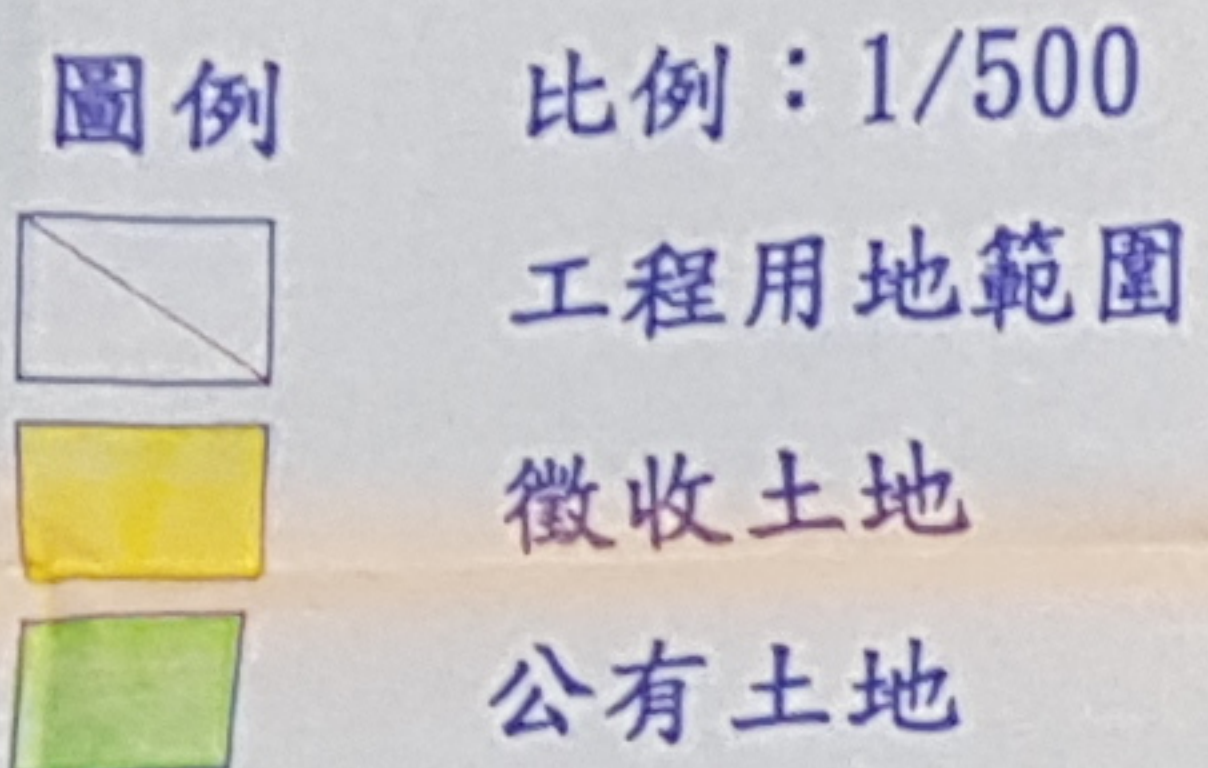 圖例 比例：1/500
工程用地範圍
徵收土地
公有土地